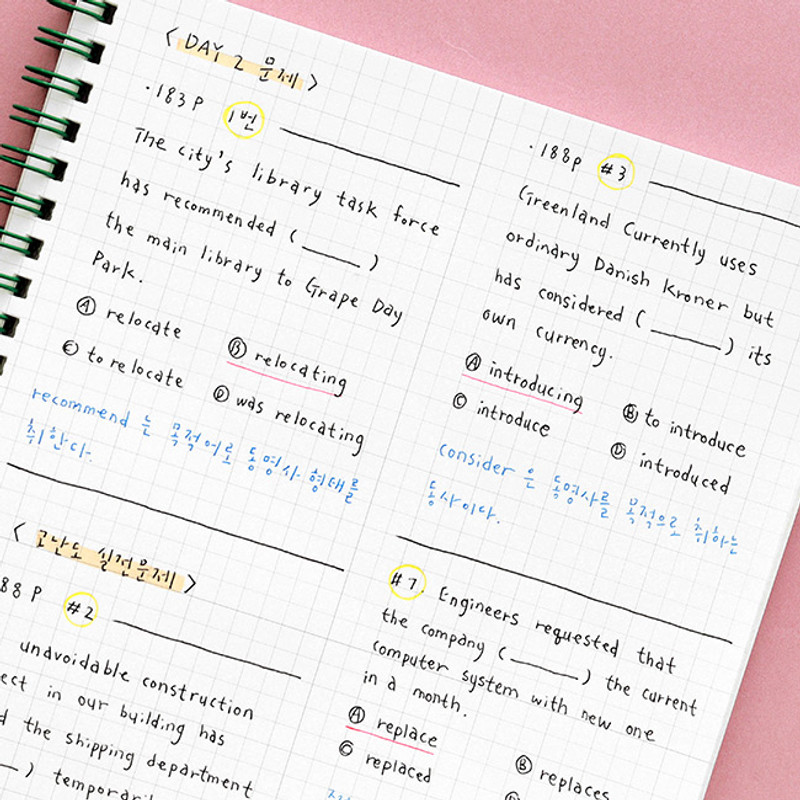 < DAY 2 문제 >
· 183 P 1번
The city's library task force
has recommended ( ____ )
the main library to Grape Day
Park.
Ⓐ relocate
Ⓑ relocating
Ⓒ to relocate
Ⓓ was relocating
recommend 는 목적어로 동명사 형태를
취한다.
< 고난도 실전문제 >
88 P #2
unavoidable construction
ect in our building has
d the shipping department
__ ) temporari
· 188p #3
Greenland Currently uses
ordinary Danish Kroner but
has considered ( ____ ) its
own currency.
Ⓐ introducing
Ⓑ to introduce
Ⓒ introduce
Ⓓ introduced
consider 은 동명사를 목적으로 취하는
동사이다.
#7. Engineers requested that
the company ( ____ ) the current
computer system with new one
in a month.
Ⓐ replace
Ⓑ replaces
Ⓒ replaced